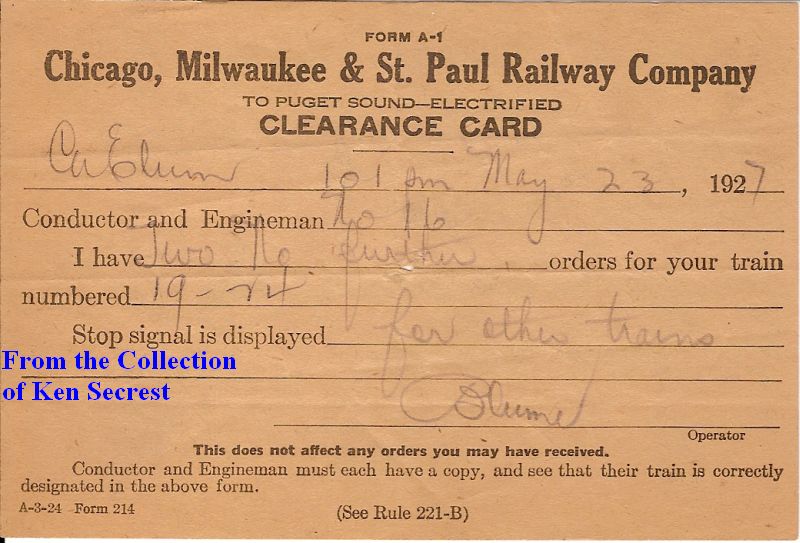 FORM A-1
Chicago, Milwaukee & St. Paul Railway Company
TO PUGET SOUND—ELECTRIFIED
CLEARANCE CARD
101 pm May 23, 1927
Conductor and Engineman No 16
I have Two No further orders for your train
numbered 19 - 24
Stop signal is displayed for other trains
From the Collection
of Ken Secrest
Blume
Operator
This does not affect any orders you may have received.
Conductor and Engineman must each have a copy, and see that their train is correctly
designated in the above form.
A-3-24 Form 214
(See Rule 221-B)